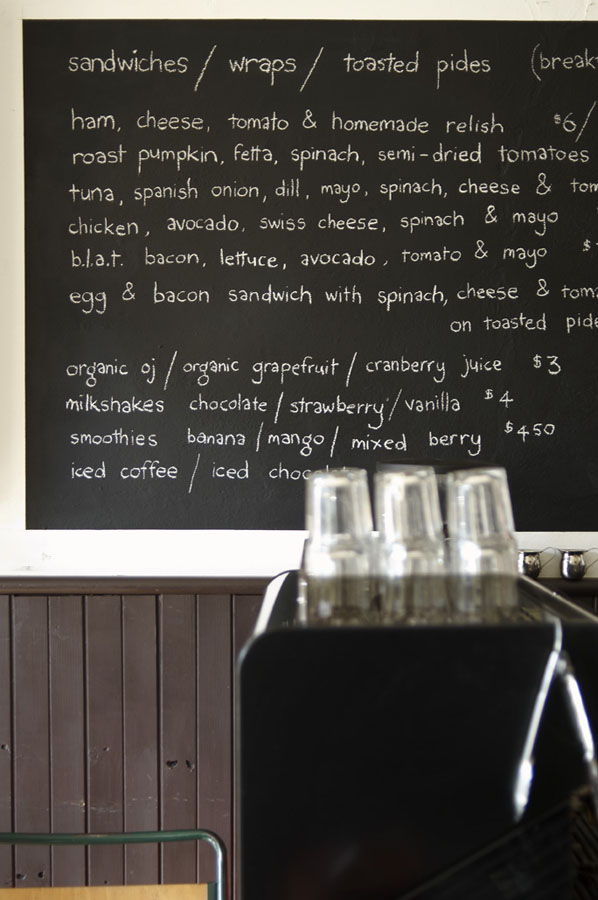 sandwiches / wraps / toasted pides
ham, cheese, tomato & homemade relish $6/
roast pumpkin, fetta, spinach, semi-dried tomatoes
tuna, spanish onion, dill, mayo, spinach, cheese &
chicken, avocado, swiss cheese, spinach & mayo
b.l.a.t. bacon, lettuce, avocado, tomato & mayo $
egg & bacon sandwich with spinach, cheese &
on toasted
organic oj / organic grapefruit / cranberry juice $3
milkshakes chocolate / strawberry / vanilla $4
smoothies banana / mango / mixed berry $450
iced coffee / iced